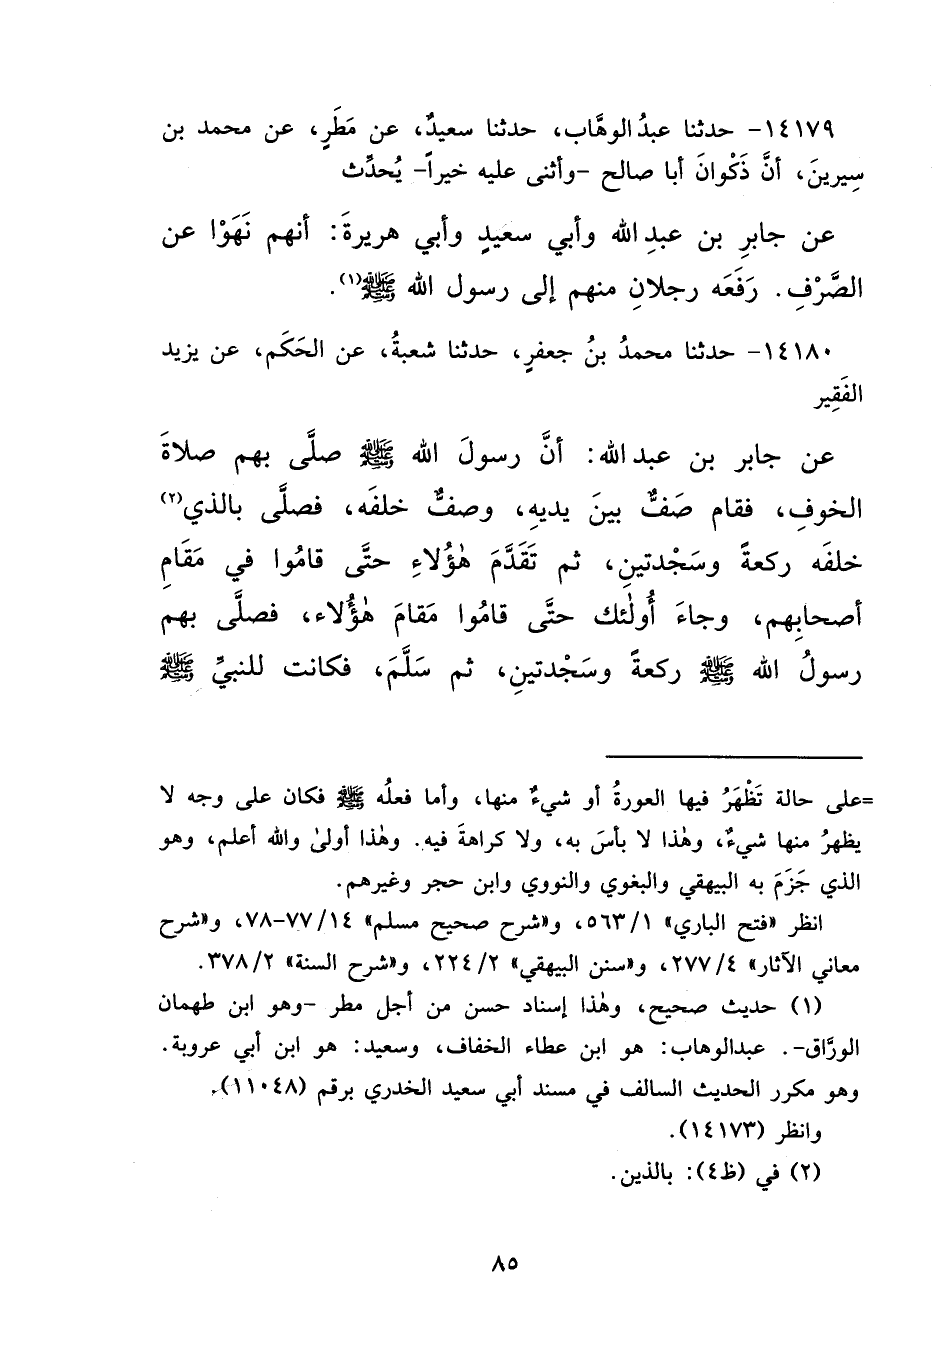 ١٤١٧٩- حدثنا عبدُ الوهَّاب، حدثنا سعيدٌ، عن مَطَرٍ، عن محمد بن
سِيرينَ، أنَّ ذَكْوانَ أبا صالح -وأثنى عليه خيراً- يُحدِّث
عن جابرِ بن عبدِ الله وأبي سعيدٍ وأبي هريرةَ: أنهم نَهَوْا عن
الصَّرْفِ. رَفَعَه رجلانِ منهم إلى رسول الله ﷺ(١).
١٤١٨٠- حدثنا محمدُ بنُ جعفرٍ، حدثنا شعبةُ، عن الحَكَم، عن يزيد
الفَقِير
عن جابر بن عبد الله: أنَّ رسولَ الله ﷺ صلَّى بهم صلاةَ
الخوفِ، فقام صَفٌّ بينَ يديهِ، وصفٌّ خلفَه، فصلَّى بالذي(٢)
خلفَه ركعةً وسَجْدتينِ، ثم تَقَدَّمَ هٰؤُلاءِ حتَّى قامُوا في مَقَامِ
أصحابِهم، وجاءَ أُولٰئك حتَّى قامُوا مَقامَ هٰؤُلاء، فصلَّى بهم
رسولُ الله ﷺ ركعةً وسَجْدتينِ، ثم سَلَّمَ، فكانت للنبيِّ ﷺ
=على حالة تَظْهَرُ فيها العورةُ أو شيءٌ منها، وأما فعلُه ﷺ فكان على وجه لا
يظهرُ منها شيءٌ، وهٰذا لا بأسَ به، ولا كراهةَ فيه. وهٰذا أولىٰ والله أعلم، وهو
الذي جَزَمَ به البيهقي والبغوي والنووي وابن حجر وغيرهم.
انظر «فتح الباري» ٥٦٣/١، و«شرح صحيح مسلم» ٧٧/١٤-٧٨، و«شرح
معاني الآثار» ٢٧٧/٤، و«سنن البيهقي» ٢٢٤/٢، و«شرح السنة» ٣٧٨/٢.
(١) حديث صحيح، وهٰذا إسناد حسن من أجل مطر -وهو ابن طهمان
الورَّاق-. عبدالوهاب: هو ابن عطاء الخفاف، وسعيد: هو ابن أبي عروبة.
وهو مكرر الحديث السالف في مسند أبي سعيد الخدري برقم (١١٠٤٨)،
وانظر (١٤١٧٣).
(٢) في (ظ٤): بالذين.
٨٥